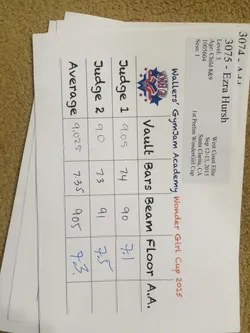 3074 -
3075 - Ezra Hursh
Level: 3
Age: Child 8&9
1005604
Sess: 1
West Coast Elite
Sep 12-13, 2015
Santa Clarita, CA
1st Prelim WonderGirl Cup
Wallers' GymJam Academy Wonder Girl Cup 2015
Vault Bars Beam Floor A.A.
Judge 1 9.05 74 90 7.1
Judge 2 90 73 91 7.5
Average 9.025 7.35 905 7.3